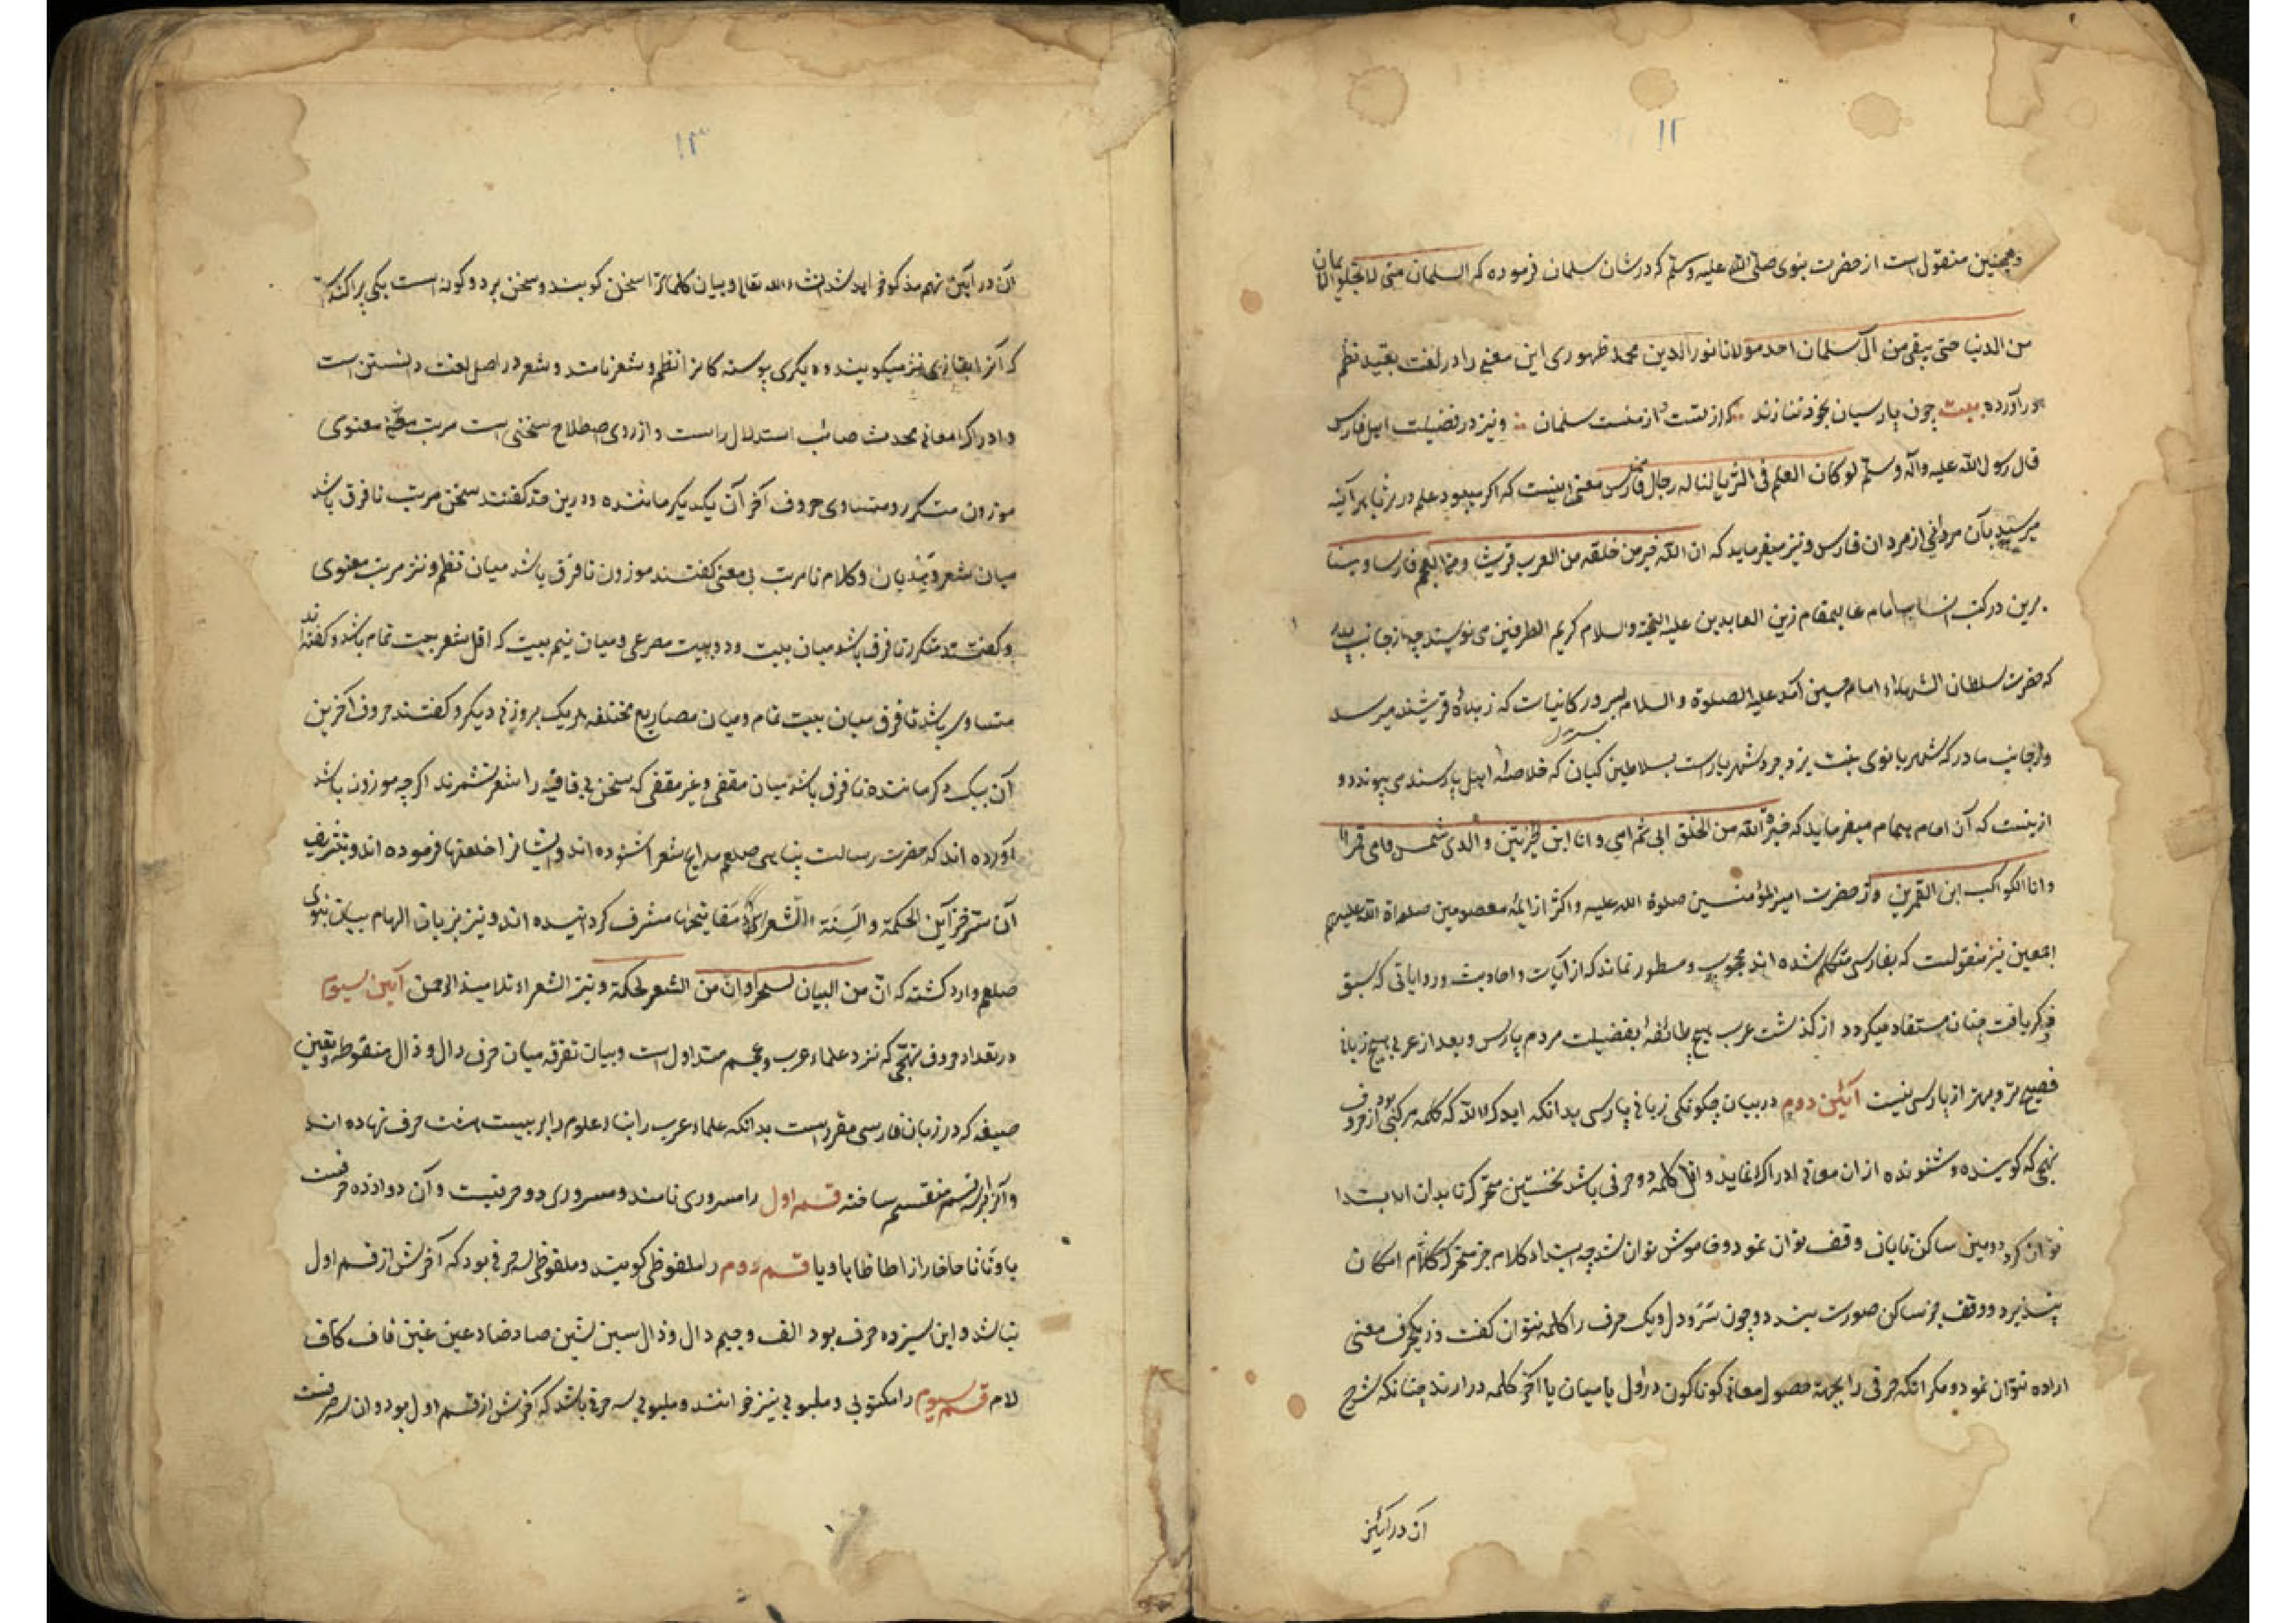 ۱۲
و همچنین منقول است از حضرت نبوی صلی الله علیه وسلم که در شان سلمان فرموده که السلمان منی لا تخلو الایمان
من الدنیا حتی یبقی من آل سلمان احد مولانا نورالدین محمد ظهوری این معنی را در لغت بقید نظم
در آورده بیت چون پارسیان بخود ننازند که از تست از منست سلمان و نیز در فضیلت اهل فارس
قال رسول الله علیه واله وسلم لو کان العلم فی الثریا لناله رجال من فارس معنی اینست که اگر میبود علم در ثریا هر آینه
میرسید بآن مردانی از مردان فارس و نیز میفرماید که ان الله خیر من خلقه من العرب قریشا ومن العجم فارسا
برین در کتب انساب امام عالیمقام زین العابدین علیه التحیة والسلام کریم الطرفین می نویسند چه از جانب پدر
که حضرت سلطان الشهداء امام حسین آمد علیه الصلوة والسلام بسرور کاینات که زبدهٔ قریشند میرسد
و از جانب مادر که شهربانوی بنت یزدجرد شهریارست بسلاطین کیان که خلاصهٔ اهل پارسند می پیوندد و
ازینست که آن امام همام میفرماید که خیرة الله من الخلق ابی ثم امی وانا ابن الخیرتین والدی شمس وامی قمر
وانا الکواکب ابن القمرین و از حضرت امیر المؤمنین صلوة الله علیه و اکثر از ایمهٔ معصومین صلواة الله علیهم
اجمعین نیز منقولست که بفارسی متکلم شده اند محجوب و مسطور نماند که از آیات و احادیث و روایاتی که سبق
ذکر یافت چنان مستفاد میگردد از گذشت عرب هیچ طائفهٔ بفضیلت مردم پارس و بعد از عربی هیچ زبانی
فصیح تر و بهتر از پارسی نیست آئین دوم در بیان چگونگی زبانی پارسی بدانکه ایدک الله که کلمه مرکبی بود از حروف
تهجی که گوینده و شنونده از ان معانی ادراک نماید و اقل کلمه دو حرفی باشد نخستین متحرک تا بدان ابتدا
توان کرد دومین ساکن تا بان وقف توان نمود و خاموش توان شد چه ابتداء کلام جز بمتحرک امکان
پذیرد و وقف جز بساکن صورت بندد چون سر و دل و یک حرف را کلمه نتوان گفت و از یکحرف معنی
اراده نتوان نمود و مگر آنکه حرفی را بجهة حصول معانی گوناگون در اول یا میان یا آخر کلمه در آرند چنانکه شرح
آن در آئین
۱۳
آن در آئین نهم مذکور خواهد شد انشاء الله تعالی و بیان کلمات را سخن گویند و سخن بر دو گونه است یکی پراکنده
که آنرا نیز میگویند و دیگری پیوسته که آنرا نظم و شعر نامند و شعر در اصل لغت دانستن است
و ادراک معانی بحدث صائب استدلال راست و از روی اصطلاح سخنی است مرتب معنوی
موزون متکرر و متساوی حروف آخر آن یکدیگر ماننده و درین حد گفتند سخن مرتب تا فرق باشد
میان شعر و هذیان و کلام نامرتب بی معنی گفتند موزون تا فرق باشد میان نظم و نثر مرتب معنوی
و گفتند متکرر تا فرق باشد میان بیت و دو بیت مصرعی و میان نیم بیت که اقل شعر بیت تمام باشد و گفته اند
متساوی باشد تا فرق میان بیت تمام و میان مصاریع مختلفه هر یک بروزنی دیگر و گفتند حروف آخرین
آن بیک دگر ماننده تا فرق باشد میان مقفی و غیر مقفی که سخن بی قافیه را شعر نشمرند اگرچه موزون باشد
آورده اند که حضرت رسالت پناهی صلعم مدایح شعرا شنوده اند و ایشانرا خلعتها فرموده اند و بتشریف
الحکمة والسنة الشعراء مفاتیحها مشرف گردانیده اند و نیز بزبان الهام بیان نبوی
صلعم وارد گشته که ان من البیان لسحرا وان من الشعر لحکمة و نیز الشعراء تلامیذ الرحمن آیین سیوم
در تعداد حروف تهجی که نزد علماء عرب و عجم متداول است و بیان تفرقه میان حرف دال و ذال منقوطه و تعین
صیغه که در زبان فارسی مقررست بدانکه علماء عرب را بناء علوم را بر بیست هشت حرف نهاده اند
و آنرا بر سه قسم منقسم ساخته قسم اول را مسروری نامند و مسروری دو حرفیست و آن دوازده حرفست
با و تا ثا حا خا را زا طا ظا فا ها و یا قسم دوم را ملفوظی گویند و ملفوظی سه حرفی بود که آخرش از قسم اول
نباشد و این سیزده حرف بود الف و جیم دال و ذال سین شین صاد ضاد عین غین قاف کاف
لام قسم سیوم را مکتوبی و ملبوبی نیز خوانند و ملبوبی سه حرفی باشد که آخرش از قسم اول بود و ان سه حرفست